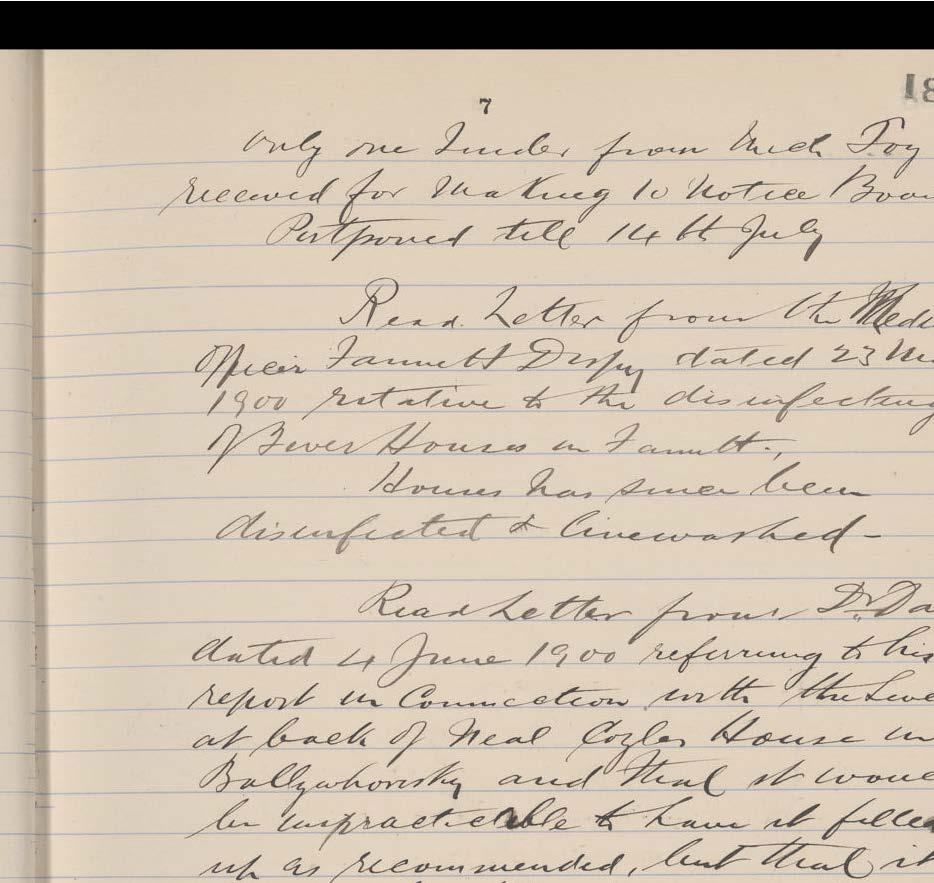 18
7
Only one Tender from Mich Foy
received for Making 10 Notice Boar
Postponed till 14th July
Read Letter from the Medi
Officer Fannett Dispy dated 23
1900 relative to the disinfecting
of Fever Houses in Fannett.,
Houses has since been
disinfected & limewashed -
Read Letter from Dr. Da
dated 4 June 1900 referring to his
report in Connection with the Sewe
at back of Neal Coyles House in
Ballywhorisky and that it woul
be impracticable to have it filled
up as recommended, but that it